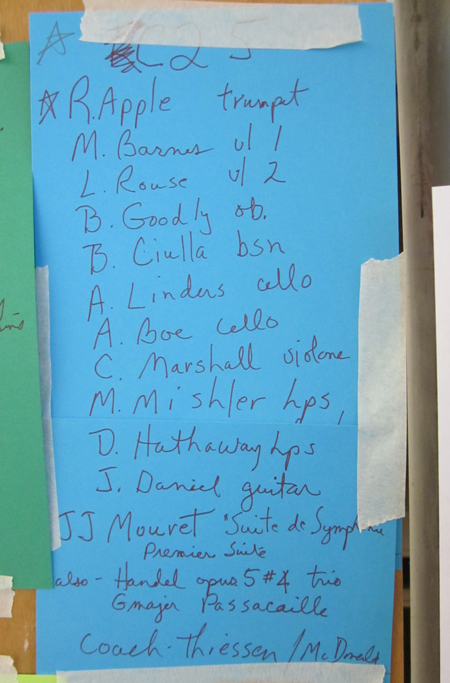 C25
R. Apple trumpet
M. Barnes vl 1
L. Rouse vl 2
B. Goodly ob.
B. Ciulla bsn
A. Linders cello
A. Boe cello
C. Marshall violone
M. Mishler hps,
D. Hathaway hps
J. Daniel guitar
JJ Mouret "Suite de Symphonie
Premier Suite
also - Handel opus 5 #4 trio
G major Passacaille
Coach - Thiessen / McDonald